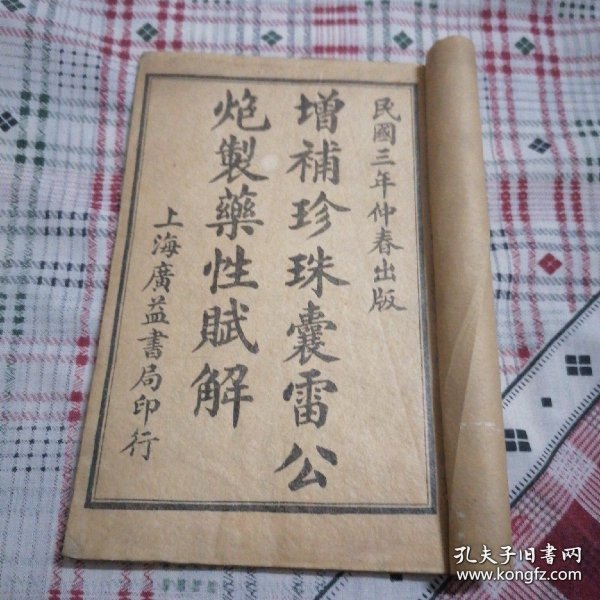 民國三年仲春出版
增補珍珠囊雷公
炮製藥性賦解
上海廣益書局印行
孔夫子旧书网
www.kongfz.com